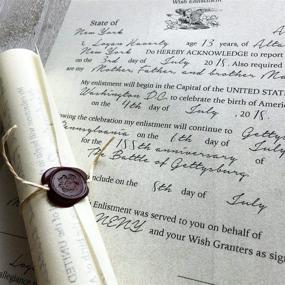 Wish Enlistment
State of
New York
I, Logan Haverty age 13 years, of
New York Do HEREBY ACKNOWLEDGE to report
on the 3rd day of July 2018. Also required
are my Mother, Father, and brother
My enlistment will begin in the Capital of the UNITED STA
Washington D.C. to celebrate the birth of America
on the 4th day of July, 2018.
wing the celebration my enlistment will continue to Gettys
Pennsylvania on the day of July
for the 155th anniversary of
The Battle of Gettysburg.
nclude on the 8th day of July
Enlistment was served to you on behalf of
NENY and your Wish Granters as sign
Log
allegiance